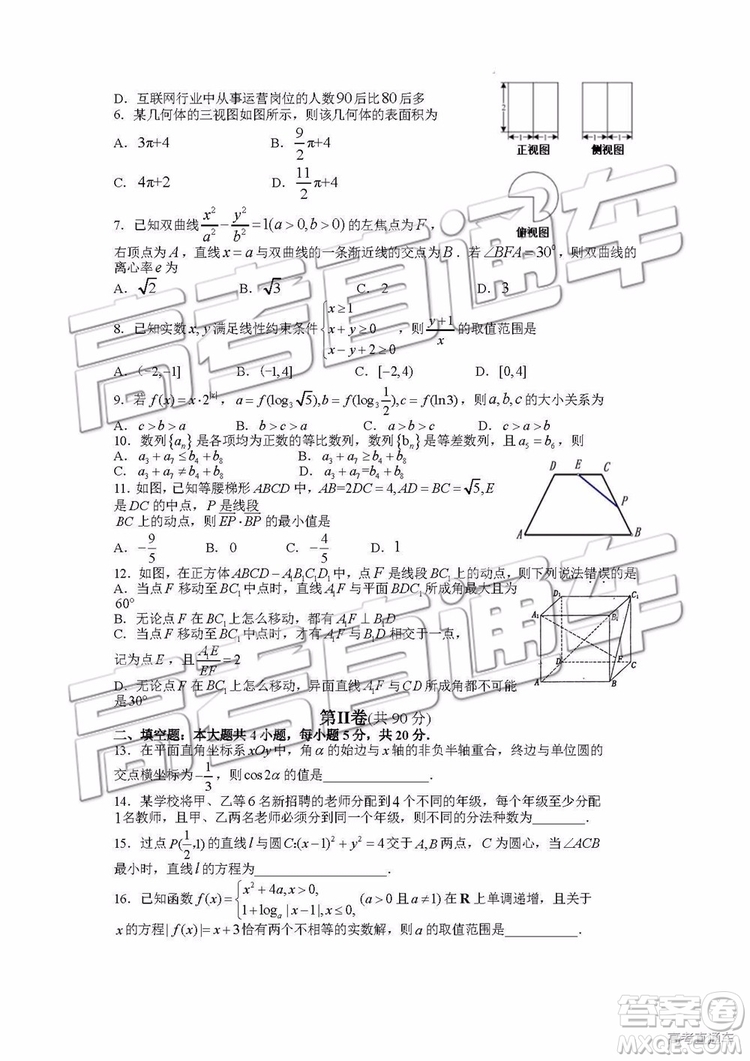 D．互联网行业中从事运营岗位的人数90后比80后多
6．某几何体的三视图如图所示，则该几何体的表面积为
A．3π+4 B．9/2 π+4
C．4π+2 D．11/2 π+4
2
1 1
1 1
正视图 侧视图
俯视图
7．已知双曲线 x²/a² − y²/b² =1(a>0,b>0) 的左焦点为F，
右顶点为A，直线x=a与双曲线的一条渐近线的交点为B．若∠BFA=30°，则双曲线的
离心率e为
A．√2 B．√3 C．2 D．3
8．已知实数x,y满足线性约束条件 {x≥1 x+y≥0 x−y+2≥0 ，则 (y+1)/x 的取值范围是
A．(−2,−1] B．(−1,4] C．[−2,4) D．[0,4]
9．若 f(x)=x·2^|x|，a=f(log₃√5),b=f(log₃ 1/2),c=f(ln3)，则a,b,c的大小关系为
A．c>b>a B．b>c>a C．a>b>c D．c>a>b
10．数列{aₙ}是各项均为正数的等比数列，数列{bₙ}是等差数列，且a₅=b₆，则
A．a₃+a₇≤b₄+b₈ B．a₃+a₇≥b₄+b₈
C．a₃+a₇≠b₄+b₈ D．a₃+a₇=b₄+b₈
11．如图，已知等腰梯形ABCD中，AB=2DC=4,AD=BC=√5,E
是DC的中点，P是线段
BC上的动点，则EP·BP的最小值是
A．−9/5 B．0 C．−4/5 D．1
D E C
P
A B
12．如图，在正方体ABCD−A₁B₁C₁D₁中，点F是线段BC₁上的动点，则下列说法错误的是
A．当点F移动至BC₁中点时，直线A₁F与平面BDC₁所成角最大且为
60°
B．无论点F在BC₁上怎么移动，都有A₁F⊥B₁D
C．当点F移动至BC₁中点时，才有A₁F与B₁D相交于一点，
记为点E，且 A₁E/EF =2
D．无论点F在BC₁上怎么移动，异面直线A₁F与CD所成角都不可能
是30°
D₁ C₁
A₁ B₁
D F C
A B
第II卷(共90分)
二、填空题：本大题共4小题，每小题5分，共20分．
13．在平面直角坐标系xOy中，角α的始边与x轴的非负半轴重合，终边与单位圆的
交点横坐标为−1/3，则cos2α的值是____________．
14．某学校将甲、乙等6名新招聘的老师分配到4个不同的年级，每个年级至少分配
1名教师，且甲、乙两名老师必须分到同一个年级，则不同的分法种数为________．
15．过点P(1/2,1)的直线l与圆C:(x−1)²+y²=4交于A,B两点，C为圆心，当∠ACB
最小时，直线l的方程为____________．
16．已知函数f(x)={x²+4a,x>0, 1+logₐ|x−1|,x≤0, (a>0且a≠1)在R上单调递增，且关于
x的方程|f(x)|=x+3恰有两个不相等的实数解，则a的取值范围是__________．
高考直通车
高考直通车
答案圈
MXQE.COM
高考直通车